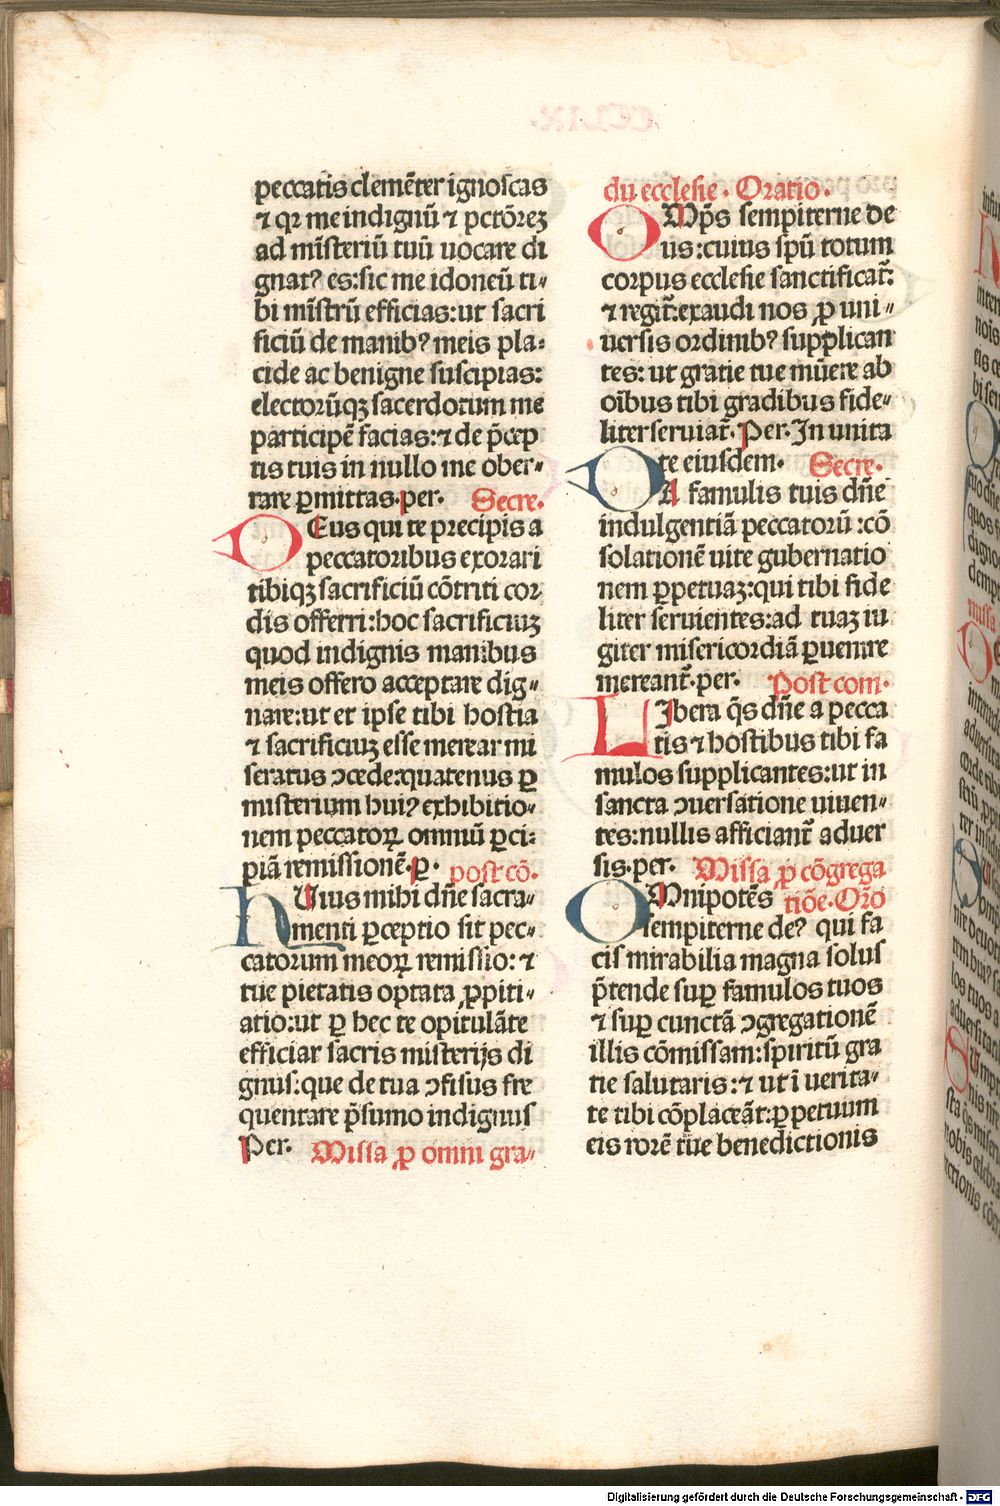 peccatis clemēter ignoscas
⁊ qꝛ me indignū ⁊ pctōreꝫ
ad mīsteriū tuū uocare di
gnatꝰ es:sic me idoneū ti-
bi mīstrū efficias:ut sacri
ficiū de manibꝰ meis pla-
cide ac benigne suscipias:
electorūqꝫ sacerdotum me
participē facias:⁊ de p̄cep
tis tuis in nullo me ober-
rare ꝑmittas.per. Secre.
DEus qui te precipis a
peccatoribus exorari
tibiqꝫ sacrificiū cōtriti cor
dis offerri:hoc sacrificiuꝫ
quod indignis manibus
meis offero acceptare dig-
nare:ut et ipse tibi hostia
⁊ sacrificiuꝫ esse merear mi
seratus ꝯcede:quatenus ꝑ
misterium huiꝰ exhibitio-
nem peccatoꝝ omniū ꝑci-
piā remissionē.ꝑ. post cō.
HUius mihi dn̄e sacra-
menti ꝑceptio sit pec-
catorum meoꝝ remissio:⁊
tue pietatis optata ꝓpiti-
atio:ut ꝑ hec te opitulāte
efficiar sacris misterijs di
gnus:que de tua ꝯfisus fre
quentare p̄sumo indignus
Per. Missa ꝓ omni gra-
du ecclesie. Oratio.
OMp̄s sempiterne de
us:cuius spū totum
corpus ecclesie sanctificat̄:
⁊ regit̄:exaudi nos ꝓ uni-
uersis ordinibꝰ supplican
tes: ut gratie tue mūere ab
oībus tibi gradibus fide-
liter seruiat̄. Per. In unita
te eiusdem. Secre.
DA famulis tuis dn̄e
indulgentiā peccatorū:cō
solationē uite gubernatio
nem ꝑpetuaꝫ:qui tibi fide
liter seruientes:ad tuaꝫ iu
giter misericordiā ꝑuenire
mereant̄.per. Post com.
LIbera q̄s dn̄e a pecca
tis ⁊ hostibus tibi fa
mulos supplicantes:ut in
sancta ꝯuersatione uiuen-
tes:nullis afficiant̄ aduer
sis.per. Missa ꝓ cōgrega
OMnipotēs tiōe. Orō
sempiterne deꝰ qui fa
cis mirabilia magna solus
p̄tende suꝑ famulos tuos
⁊ suꝑ cunctā ꝯgregationē
illis cōmissam:spiritū gra
tie salutaris:⁊ ut ī uerita-
te tibi cōplaceāt:ꝑpetuum
eis rorē tue benedictionis
Digitalisierung gefördert durch die Deutsche Forschungsgemeinschaft - DFG